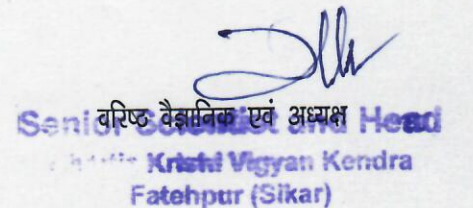 वरिष्ठ वैज्ञानिक एवं अध्यक्ष
Senior Scientist and Head
Krishi Vigyan Kendra
Fatehpur (Sikar)